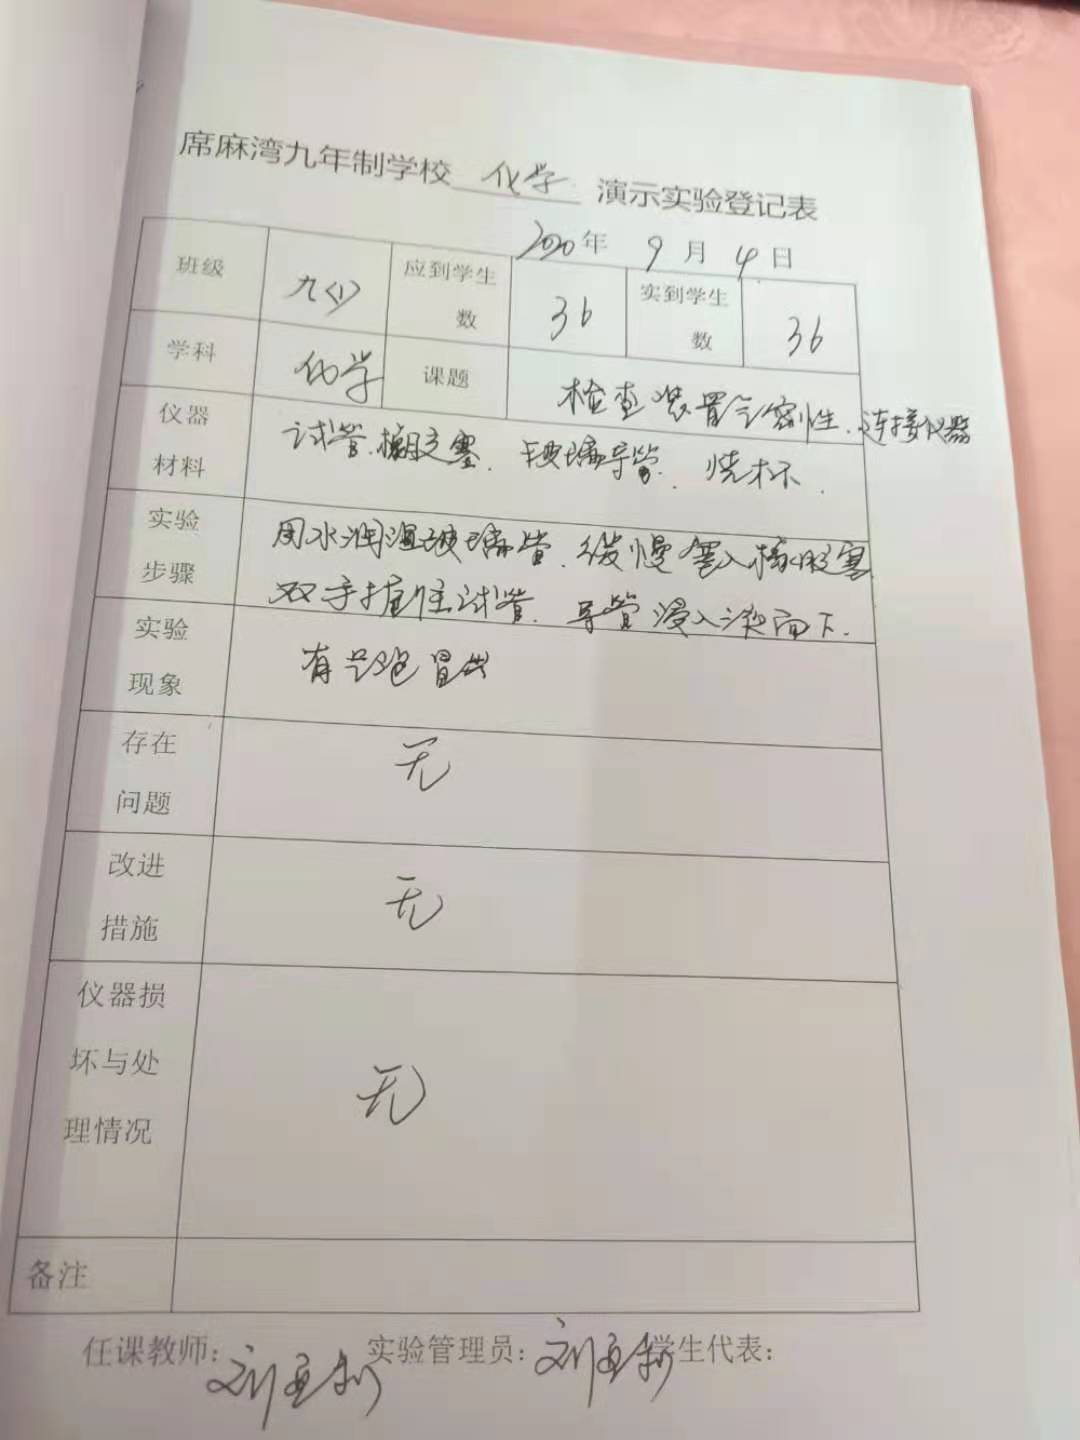 席麻湾九年制学校 化学 演示实验登记表
2020年 9月4日
班级 九(1) 应到学生数 36 实到学生数 36
学科 化学 课题 检查装置气密性.连接仪器
仪器材料 试管.橡胶塞.玻璃导管.烧杯.
实验步骤 用水润湿玻璃管.缓慢塞入橡胶塞
双手握住试管.导管浸入液面下.
实验现象 有气泡冒出
存在问题 无
改进措施 无
仪器损坏与处理情况 无
备注
任课教师: 刘 实验管理员: 刘 学生代表: